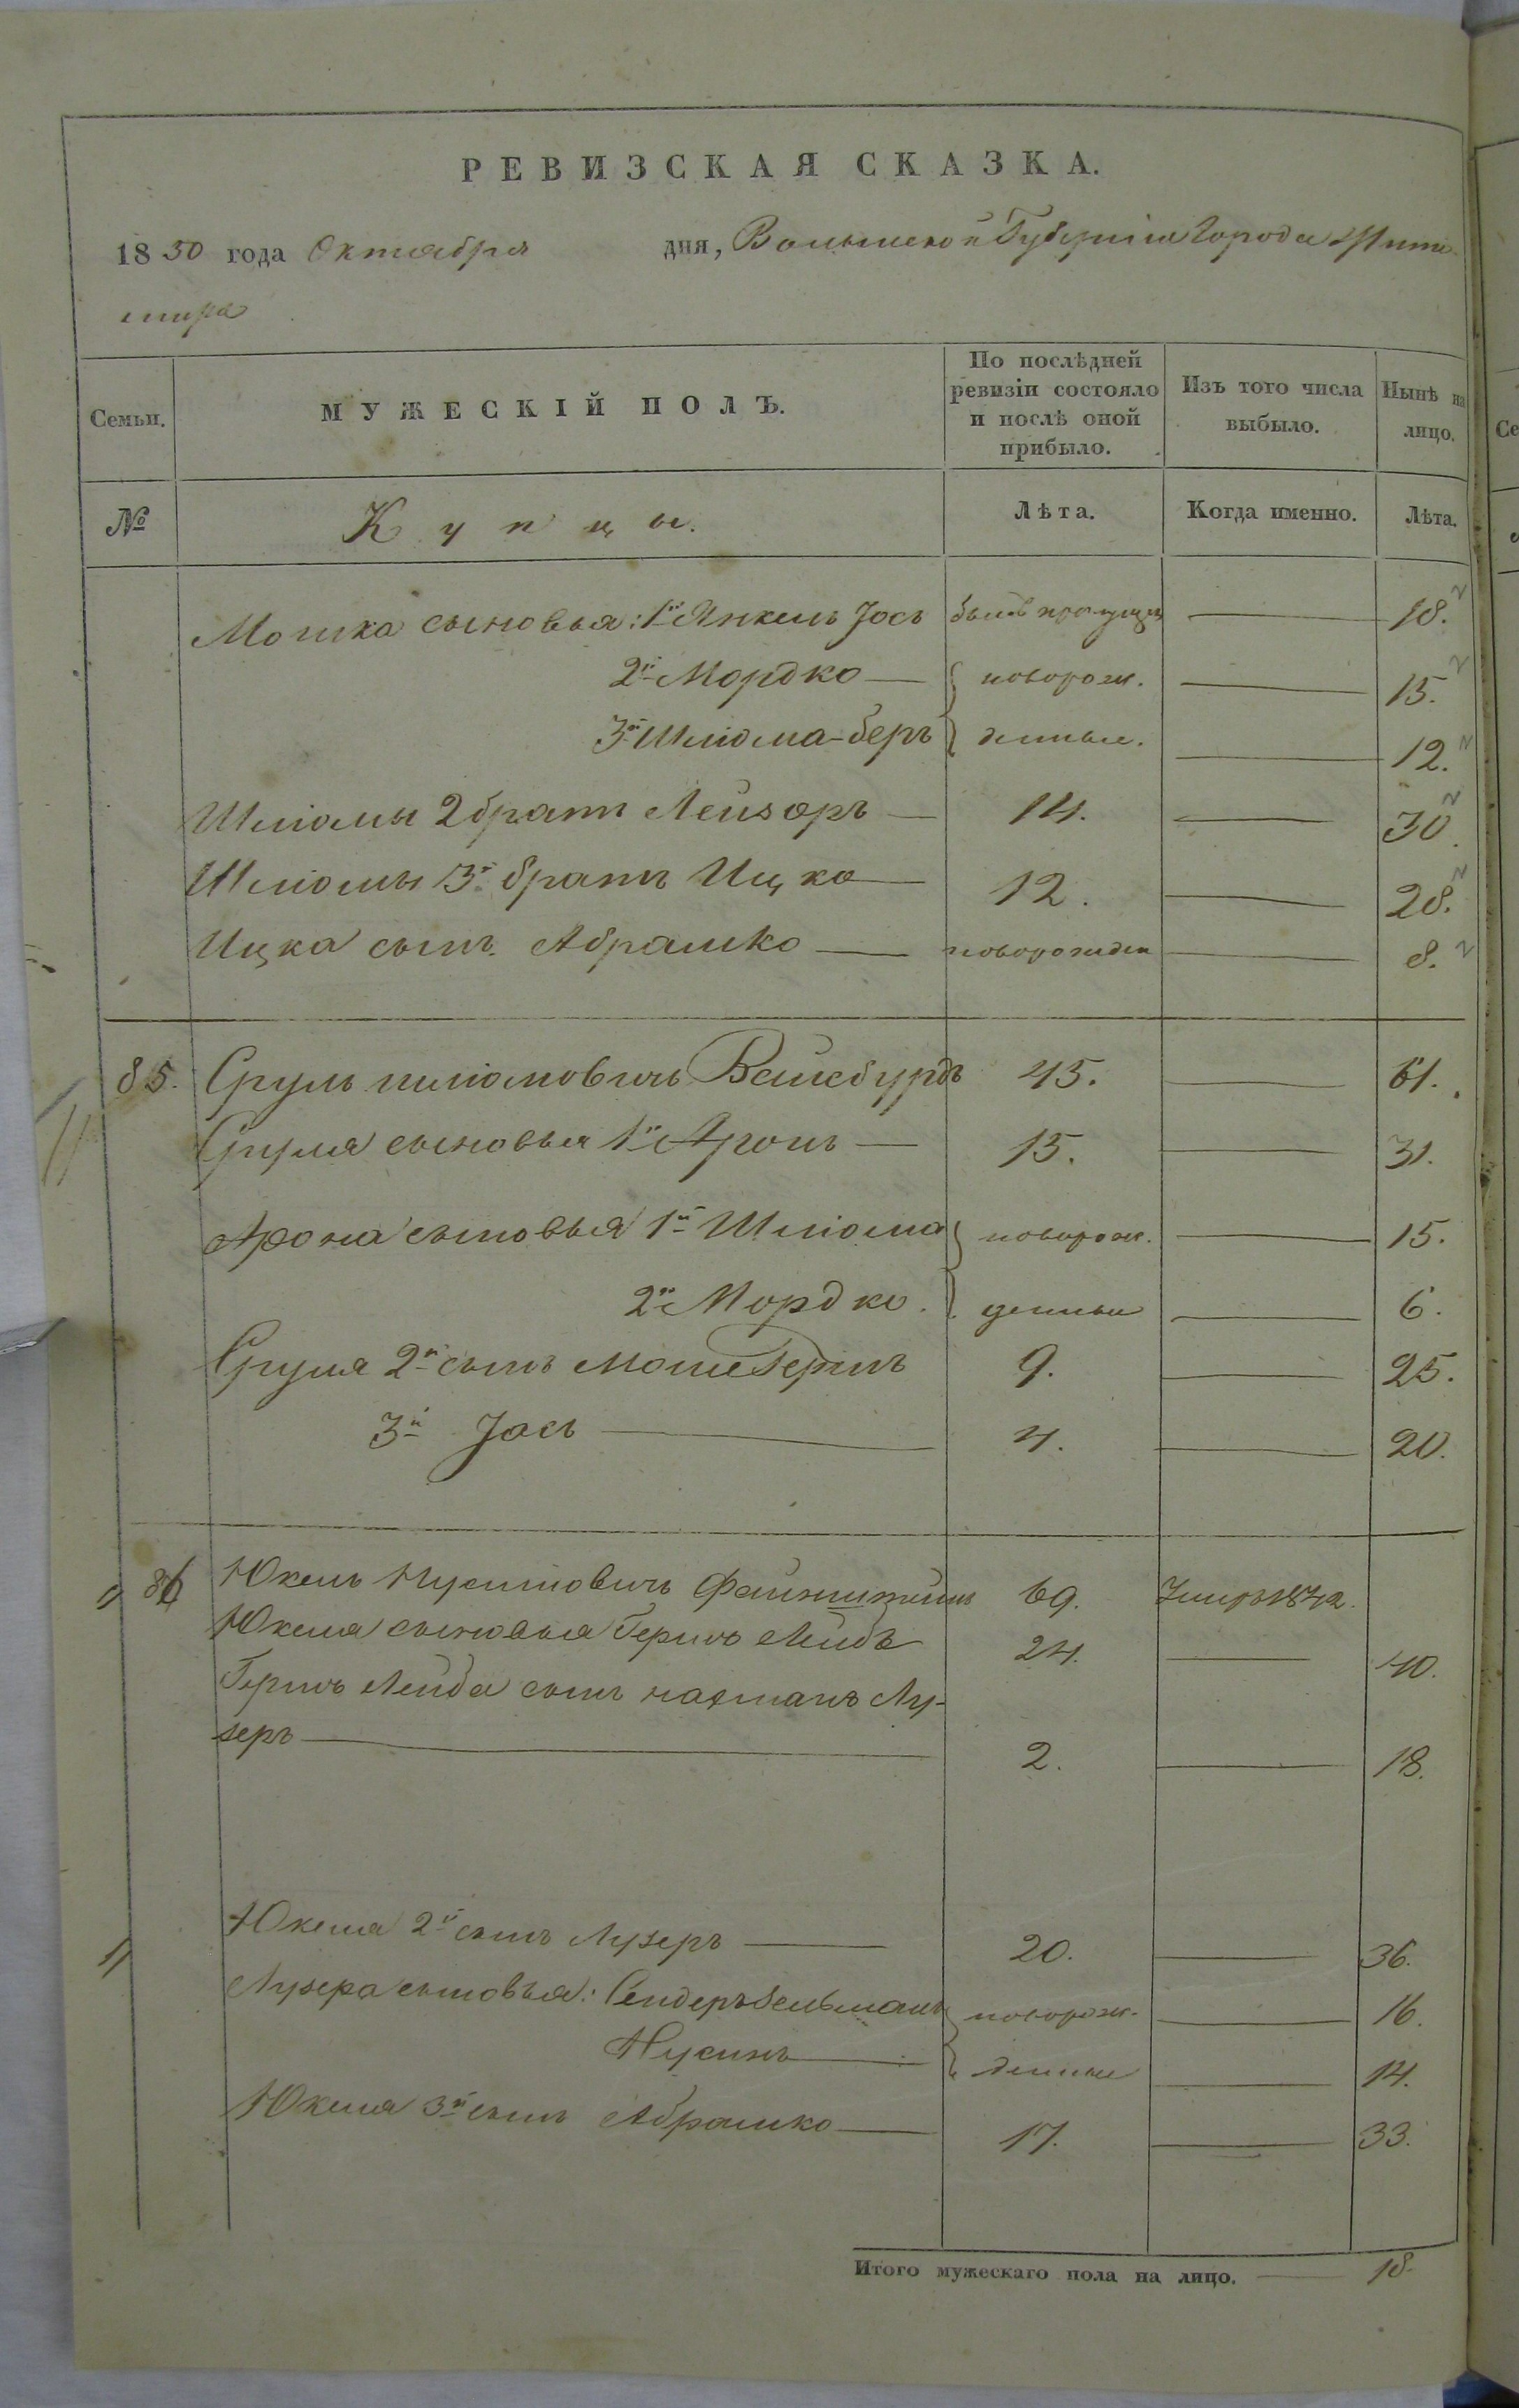 РЕВИЗСКАЯ СКАЗКА.
1850 года Октября дня, Волынской Губерніи Города Жито-
мира
Семьи. МУЖЕСКІЙ ПОЛЪ. По послѣдней ревизіи состояло и послѣ оной прибыло. Изъ того числа выбыло. Нынѣ на лицо.
№ Купцы. Лѣта. Когда именно. Лѣта.
Мошка сыновья: 1й Янкель Іось былъ пропущен 18.
2й Мордко новорож. 15.
3й Шліома-беръ денные. 12.
Шліомы 2 братъ Лейзоръ 14. 30.
Шліомы 3й братъ Ицко 12. 28.
Ицка сынъ Абрамко новорожден 8.
85. Сруль шліомовичь Вейсбурдъ 45. 61.
Сруля сыновья 1й Аронъ 15. 31.
Арона сыновья 1й Шліома новорож. 15.
2й Мордко. денные 6.
Сруля 2й сынъ Мошегершъ 9. 25.
3й Іось 4. 20.
86 Юкель Нусиновичь 69. Умеръ 1842.
Юкеля сыновья Гершъ Лейбъ 24. 40.
Гершъ Лейба сынъ нахманъ Лу-
зеръ 2. 18.
Юкеля 2й сынъ Лузеръ 20. 36.
Лузера сыновья: Сендерзельманъ новорож. 16.
Нусинъ денные 14.
Юкеля 3й сынъ Абрамко 17. 33.
Итого мужескаго пола на лицо. 18.